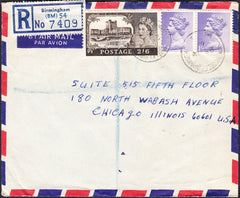 Birmingham
(BM) 54
R No 7409
BY AIR MAIL
PAR AVION
POSTAGE 2/6
SUITE 515 FIFTH FLOOR
180 NORTH WABASH AVENUE
CHICAGO ILLINOIS 60601 U.S.A